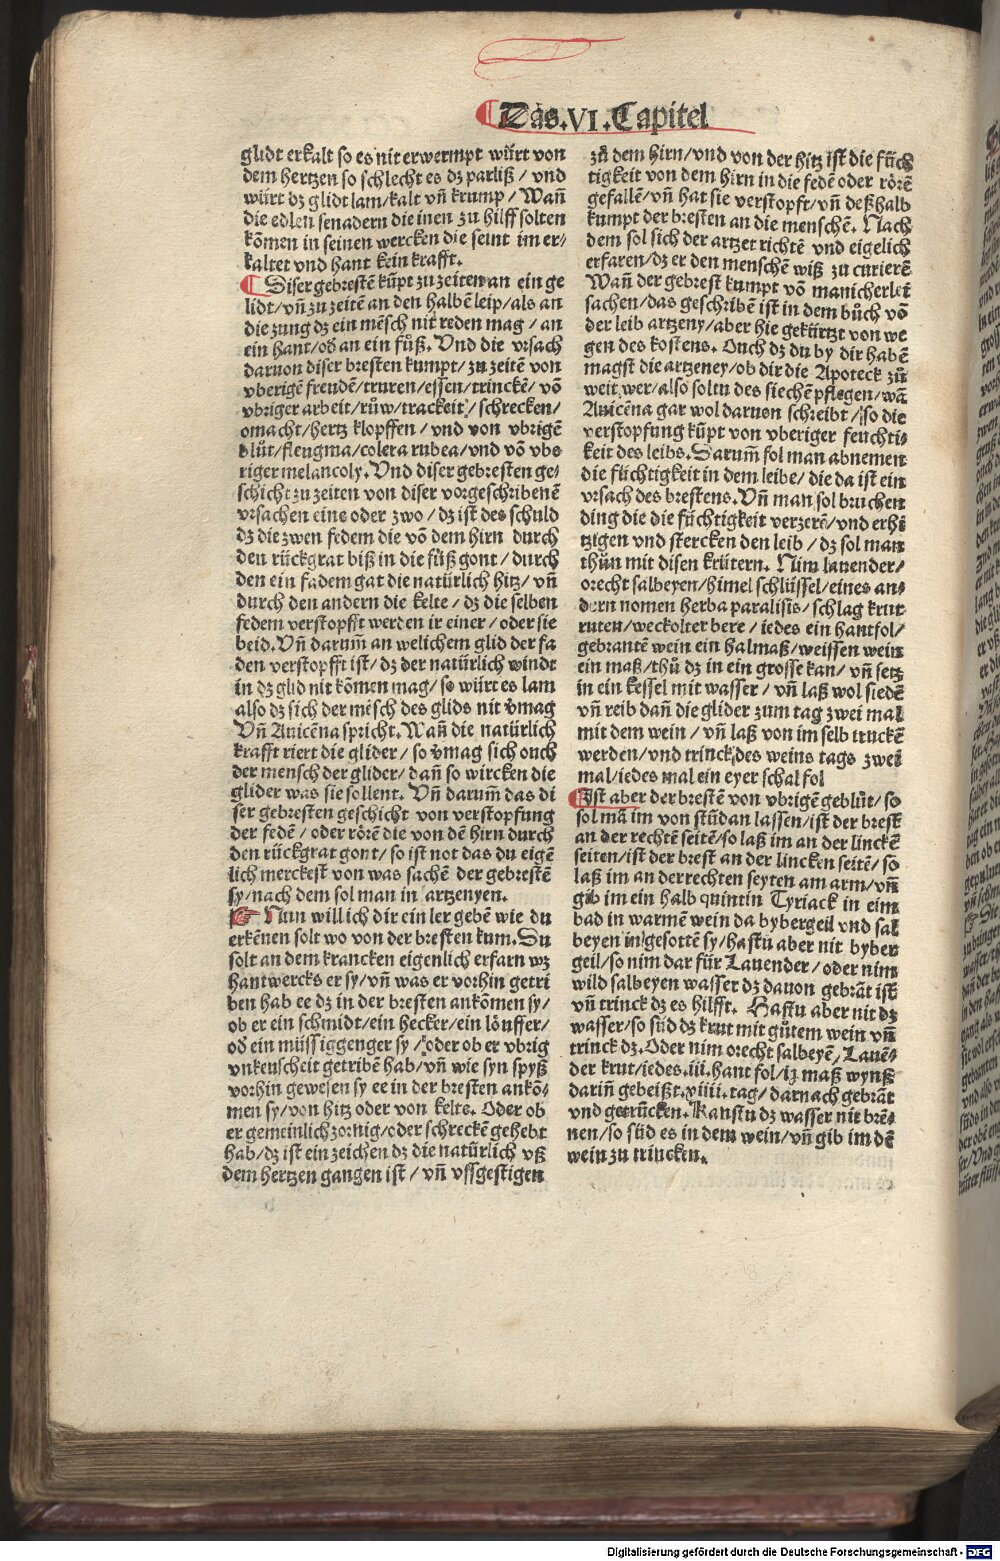 Das.VI.Capitel
glidt erkalt so es nit erwermpt würt von
dem hertzen so schlecht es dz parliß / vnd
würt dz glidt lam/kalt vñ krump / Wañ
die edlen senadern die inen zu hilff solten
kömen in seinen wercken die seint im er/
kaltet vnd hant kein krafft.
Diser gebrestē kūpt zu zeiten an ein ge
lidt/vñ zu zeitē an den halbē leip/als an
die zung dz ein mēsch nit reden mag / an
ein hant/od̓ an ein fůß. Vnd die vrsach
daruon diser bresten kumpt/zu zeitē von
vberigē freudē/truren/essen/trinckē/ vō
vbriger arbeit/růw/trackeit/ schrecken/
omacht/hertz klopffen / vnd von vbrigē
blůt/flengma/colera rubea/vnd vō vbe
riger melancoly. Vnd diser gebresten ge/
schicht zu zeiten von diser vorgeschribenē
vrsachen eine oder zwo / dz ist des schuld
dz die zwen fedem die vō dem hirn durch
den rückgrat biß in die füß gont / durch
den ein fadem gat die natürlich hitz/ vñ
durch den andern die kelte / dz die selben
fedem verstopfft werden ir einer / oder sie
beid. Vñ darum̄ an welichem glid der fa
den verstopfft ist/ dz der natürlich windt
in dz glid nit kōmen mag/ so würt es lam
also dz sich der mēsch des glids nit v̓mag
Vñ Auicēna spricht. Wañ die natürlich
krafft riert die glider / so v̓mag sich ouch
der mensch der glider/ dañ so wircken die
glider was sie sollent. Vñ darum̄ das di
ser gebresten geschicht von verstopfung
der fedē / oder rörē die von dē hirn durch
den rückgrat gont/ so ist not das du eigē
lich merckest von was sachē der gebrestē
sy/nach dem sol man in artzenyen.
Nun will ich dir ein ler gebē wie du
erkēnen solt wo von der bresten kum. Du
solt an dem krancken eigenlich erfarn wz
hantwercks er sy/vñ was er vorhin getri
ben hab ee dz in der bresten ankōmen sy/
ob er ein schmidt/ein hecker/ein löuffer/
od̓ ein müssiggenger sy / oder ob er vbrig
vnkeuscheit getribē hab/vñ wie syn spyß
vorhin gewesen sy ee in der bresten ankō/
men sy/von hitz oder von kelte. Oder ob
er gemeinlich zornig/oder schreckē gehebt
hab/dz ist ein zeichen dz die natürlich vß
dem hertzen gangen ist / vñ vffgestigen
zů dem hirn/vnd von der hitz ist die füch
tigkeit von dem hirn in die fedē oder rörē
gefallē/vñ hat sie verstopft/vñ deßhalb
kumpt der bresten an die menschē. Nach
dem sol sich der artzet richtē vnd eigelich
erfaren/dz er den menschē wiß zu curierē
Wañ der gebrest kumpt vō manicherlei
sachen/das geschribē ist in dem bůch vō
der leib artzeny/aber hie gekürtzt von we
gen des kostens. Ouch dz du by dir habē
magst die artzeney/ob dir die Apoteck zů
weit wer/also soltu des siechē pflegen/wā
Auicēna gar wol daruon schreibt / so die
verstopfung kūpt von vberiger feuchti/
keit des leibs. Darum̄ sol man abnemen
die füchtigkeit in dem leibe/ die da ist ein
vrsach des brestens. Vñ man sol bruchen
ding die die füchtigkeit verzerē/vnd erhi
tzigen vnd stercken den leib / dz sol man
thůn mit disen krütern. Nim lauender/
orecht salbeyen/himel schlüssel/eines an/
dern nomen herba paralisis/ schlag krut
ruten/weckolter bere / iedes ein hantfol/
gebrantē wein ein halmaß/weissen wein
ein maß/thů dz in ein grosse kan/ vñ setz
in ein kessel mit wasser / vñ laß wol siedē
vñ reib dañ die glider zum tag zwei mal
mit dem wein / vñ laß von im selb truckē
werden/vnd trinck des weins tags zwei
mal/iedes mal ein eyer schal fol
Ist aber der brestē von vbrigē geblüt/ so
sol mā im von stūdan lassen/ist der brest
an der rechtē seitē/so laß im an der linckē
seiten/ist der brest an der lincken seitē/ so
laß im an der rechten seyten am arm/vñ
gib im ein halb quintin Tyriack in eim
bad in warmē wein da bybergeil vnd sal
beyen in gesottē sy/hastu aber nit byber
geil/so nim dar für Lauender/oder nim
wild salbeyen wasser dz dauon gebrāt ist
vñ trinck dz es hilfft. Hastu aber nit dz
wasser/so süd dz krut mit gůtem wein vñ
trinck dz. Oder nim orecht salbeyē/Lauē/
der krut/iedes.iii.hant fol/iz maß wynß
dariñ gebeißt.viiii.tag/darnach gebrāt
vnd getrücken. Kanstu dz wasser nit brē/
nen/so süd es in dem wein/vñ gib im dē
wein zu trincken.
Digitalisierung gefördert durch die Deutsche Forschungsgemeinschaft - DFG